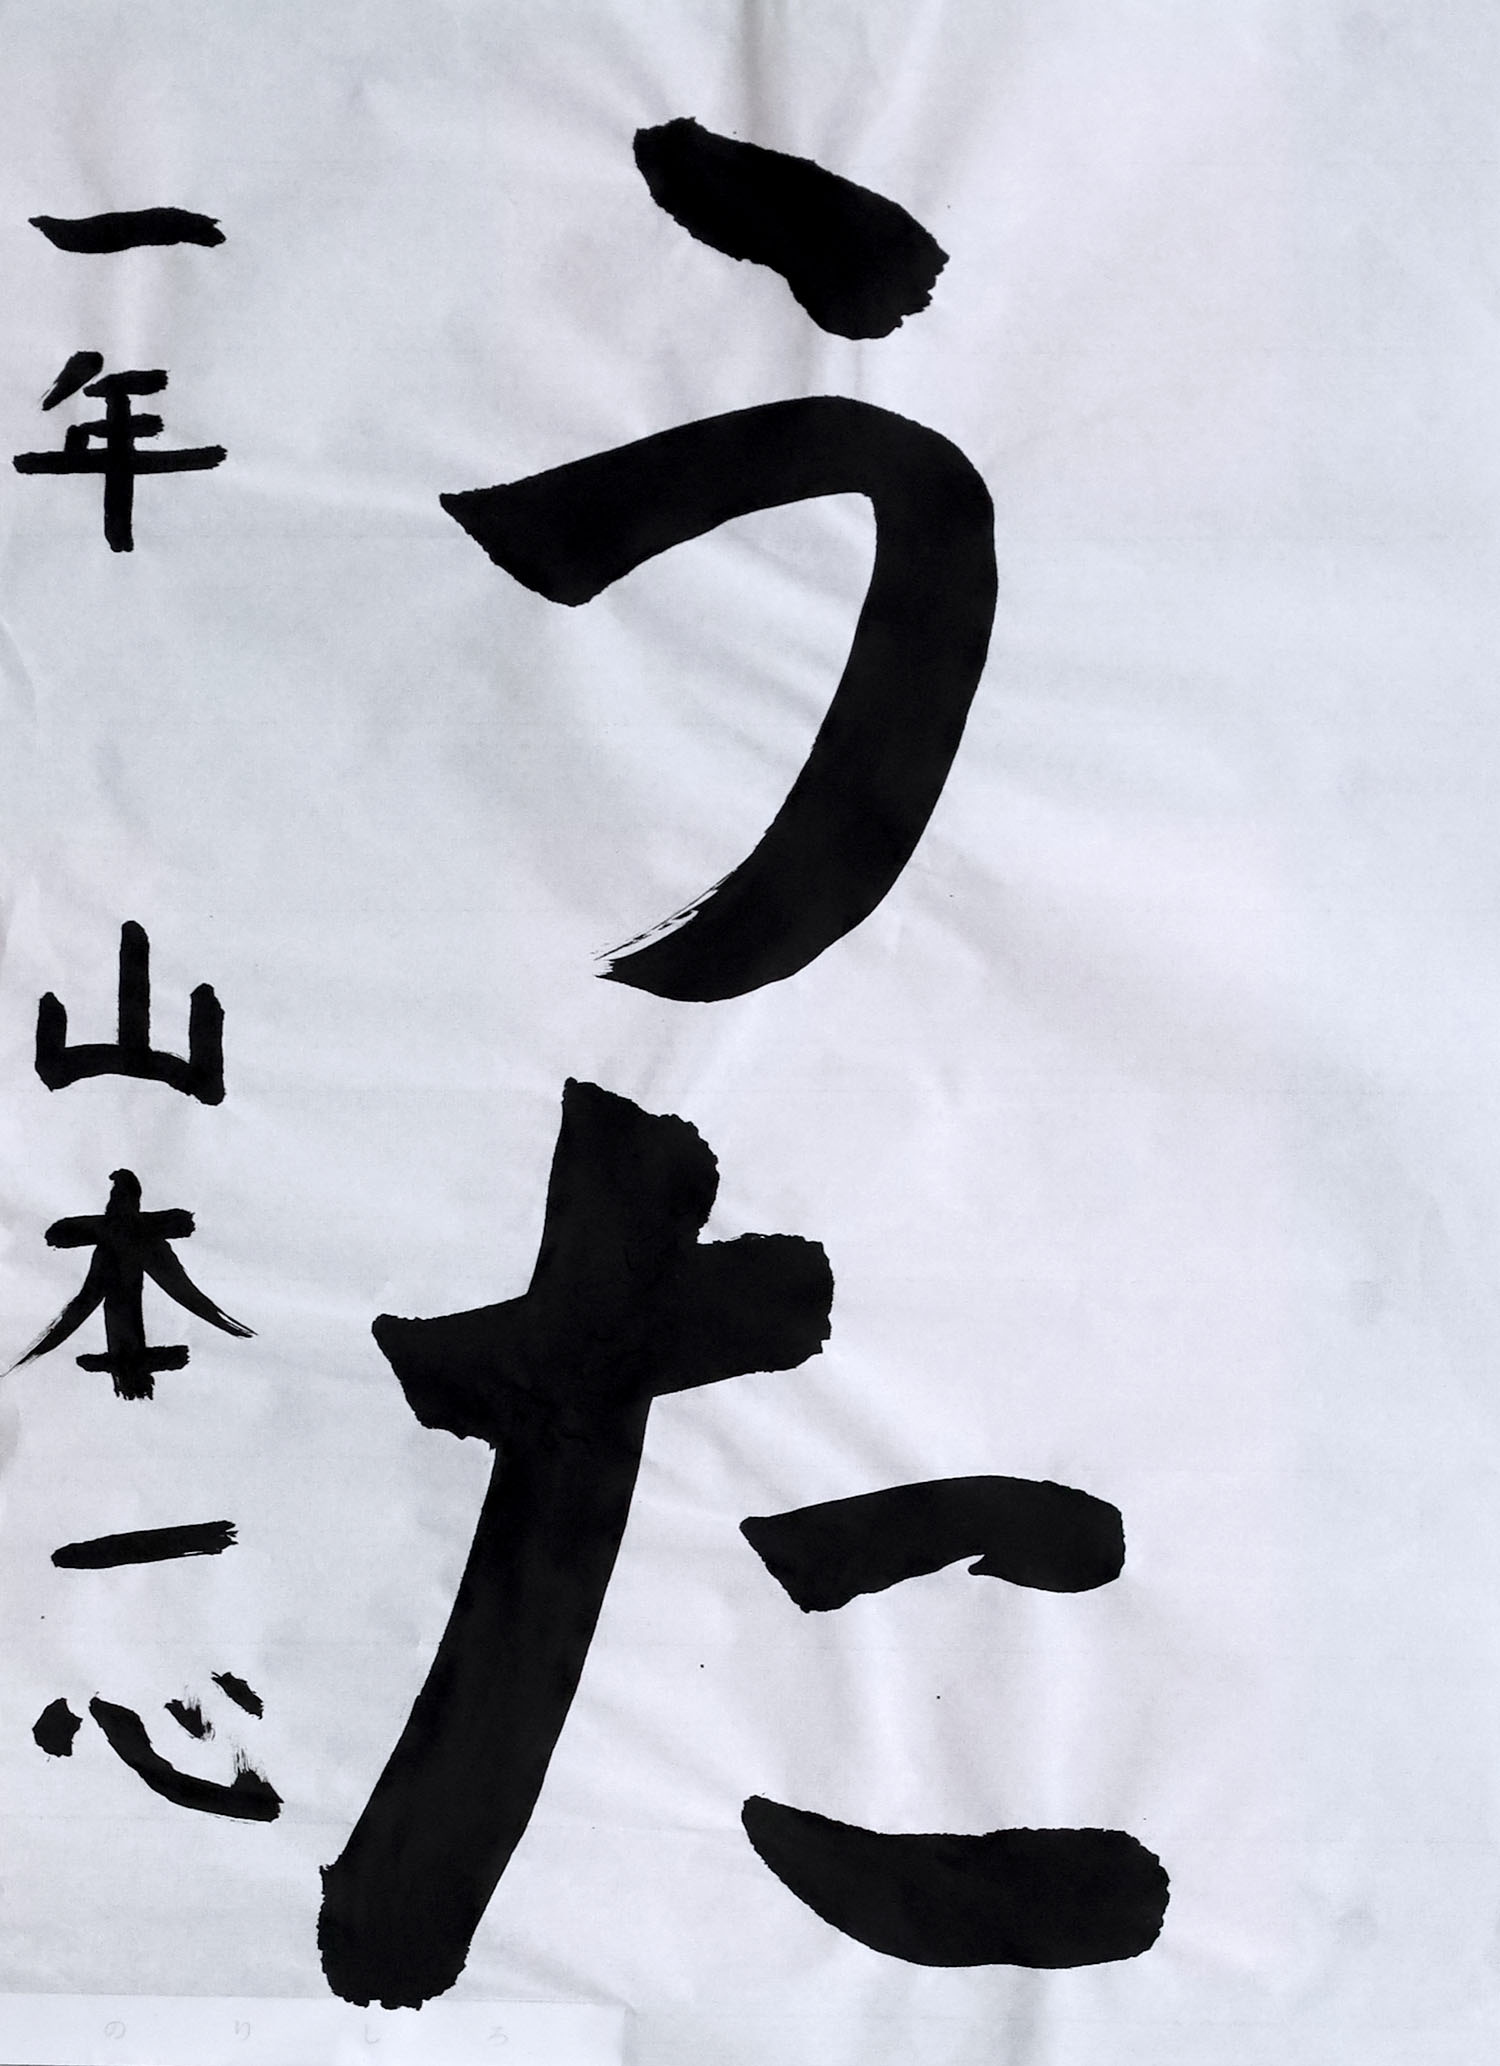 うた
一年 山本一心
のりしろ